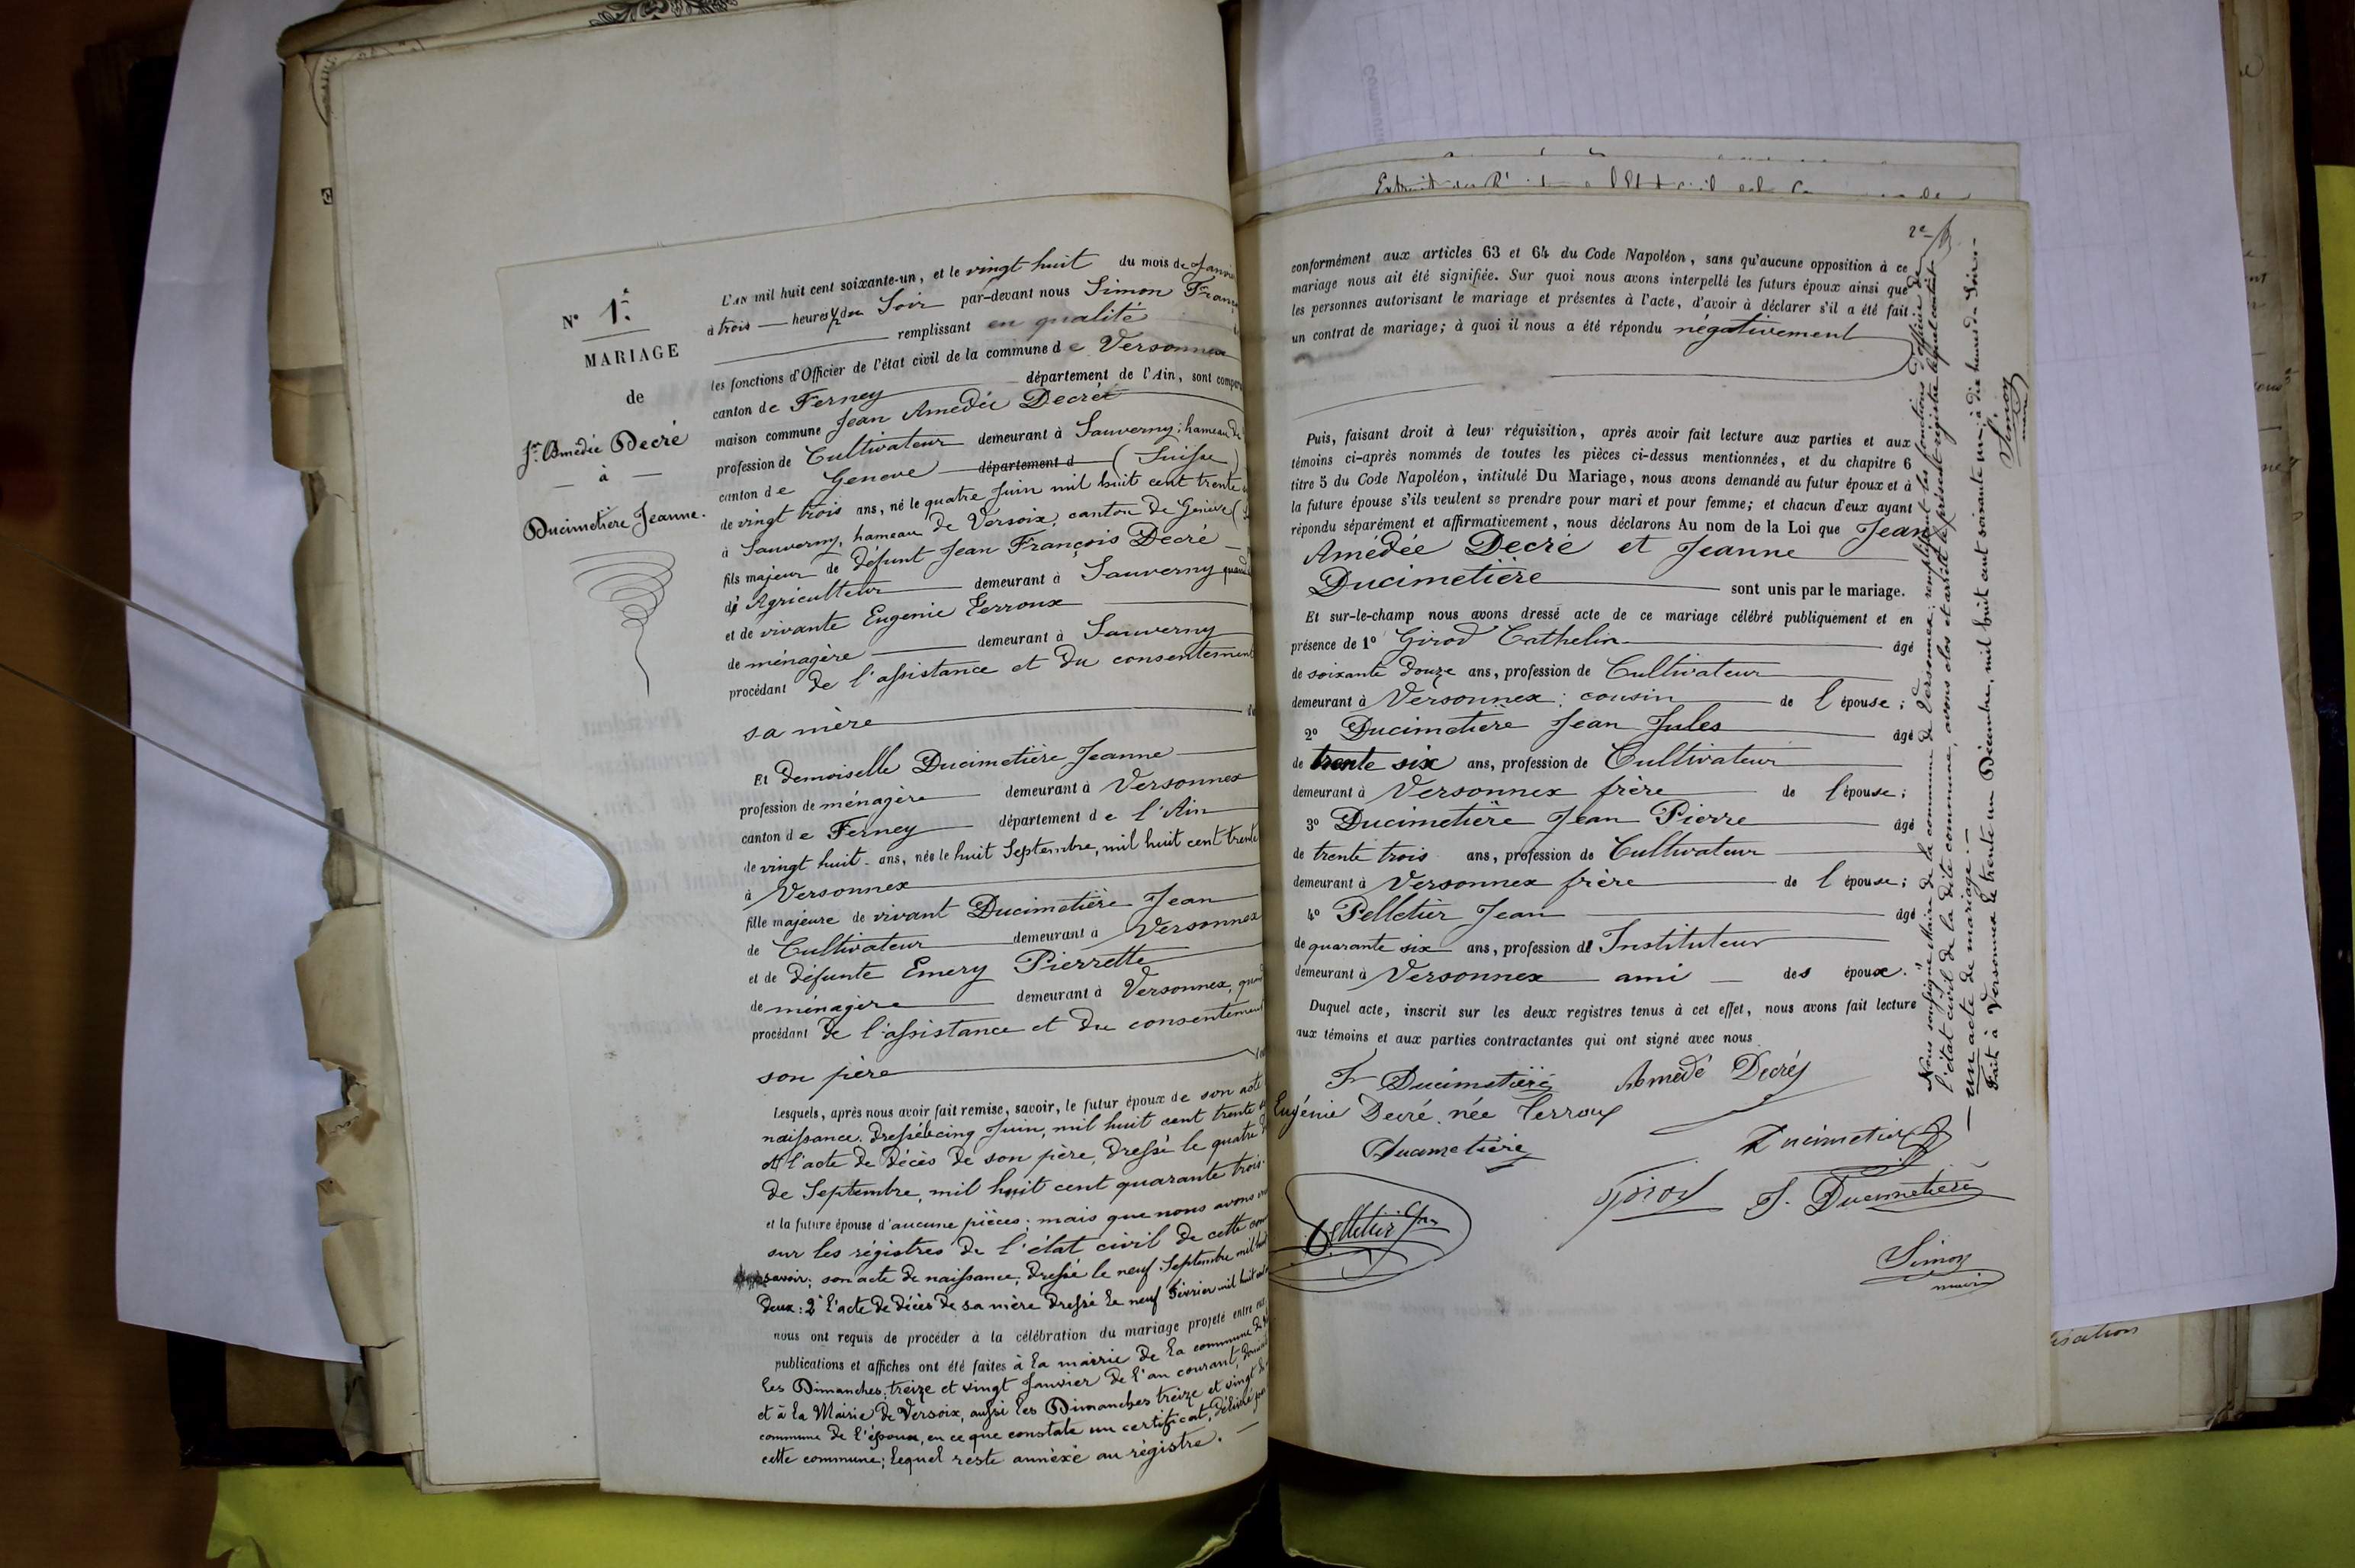 N° 1.
MARIAGE
de
Jn Amédée Decré
à
Ducimetière Jeanne.
L'AN mil huit cent soixante-un, et le vingt huit du mois de Janvi
à trois heures ½ du Soir par-devant nous Simon Franç
remplissant en qualité
les fonctions d'Officier de l'état civil de la commune de Versonnex
canton de Ferney département de l'Ain, sont compar
maison commune Jean Amédée Decré
profession de Cultivateur demeurant à Sauverny; hameau de
canton de Genève département d (Suisse)
de vingt trois ans, né le quatre Juin mil huit cent trente
à Sauverny, hameau de Versoix, canton de Genève (
fils majeur de défunt Jean François Decré
de Agriculteur demeurant à Sauverny quand
et de vivante Eugenie Terroux
de ménagère demeurant à Sauverny
procédant de l'assistance et du consentement
sa mère
Et Demoiselle Ducimetière Jeanne
profession de ménagère demeurant à Versonnex
canton de Ferney département de l'Ain
de vingt huit ans, née le huit Septembre, mil huit cent trente
à Versonnex
fille majeure de vivant Ducimetière Jean
de Cultivateur demeurant à Versonnex
et de défunte Emery Pierrette
de ménagère demeurant à Versonnex, quan
procédant de l'assistance et du consentement
son père
Lesquels, après nous avoir fait remise, savoir, le futur époux de son acte
naissance. dressé le cinq Juin, mil huit cent trente
et l'acte de décès de son père, dressé le quatre
de Septembre, mil huit cent quarante trois.
et la future épouse d'aucune pièces; mais que nous avons
sur les régistres de l'état civil de cette com
savoir; son acte de naissance, dressé le neuf Septembre mil huit
deux: 2° l'acte de décès de sa mère dressé le neuf Février mil huit cent
nous ont requis de procéder à la célébration du mariage projeté entre eux
publications et affiches ont été faites à la mairie de la commune de
les Dimanches, treize et vingt Janvier de l'an courant,
et à la Mairie de Versoix, aussi les Dimanches treize et vingt
commune de l'époux, en ce que constate un certificat, délivré par
cette commune; lequel reste annéxé au régistre.
2e
conformément aux articles 63 et 64 du Code Napoléon, sans qu'aucune opposition à ce
mariage nous ait été signifiée. Sur quoi nous avons interpellé les futurs époux ainsi que
les personnes autorisant le mariage et présentes à l'acte, d'avoir à déclarer s'il a été fait
un contrat de mariage; à quoi il nous a été répondu négativement
Puis, faisant droit à leur réquisition, après avoir fait lecture aux parties et aux
témoins ci-après nommés de toutes les pièces ci-dessus mentionnées, et du chapitre 6
titre 5 du Code Napoléon, intitulé Du Mariage, nous avons demandé au futur époux et à
la future épouse s'ils veulent se prendre pour mari et pour femme; et chacun d'eux ayant
répondu séparément et affirmativement, nous déclarons Au nom de la Loi que Jean
Amédée Decré et Jeanne
Ducimetière sont unis par le mariage.
Et sur-le-champ nous avons dressé acte de ce mariage célébré publiquement et en
présence de 1° Girod Cathelin âgé
de soixante douze ans, profession de Cultivateur
demeurant à Versonnex: cousin de l'épouse;
2° Ducimetière Jean Jules âgé
de trente six ans, profession de Cultivateur
demeurant à Versonnex frère de l'épouse;
3° Ducimetière Jean Pierre âgé
de trente trois ans, profession de Cultivateur
demeurant à Versonnex frère de l'épouse;
4° Pelletier Jean âgé
de quarante six ans, profession de Instituteur
demeurant à Versonnex ami des époux.
Duquel acte, inscrit sur les deux registres tenus à cet effet, nous avons fait lecture
aux témoins et aux parties contractantes qui ont signé avec nous
Jn Ducimetière Amédé Decrés
Eugénie Decré née Terroux
Ducimetière Ducimetière
Girod J. Ducimetière
Pelletier Jn
Simon
maire
Nous soussigné Maire de la commune de Versonnex, remplissant les fonctions d'officier de
l'état civil de la dite commune, avons clos et arrêté le présent régistre lequel contient
un acte de mariage.
Fait à Versonnex le trente un Décembre, mil huit cent soixante un, à dix heures du Soir.
Simon
maire